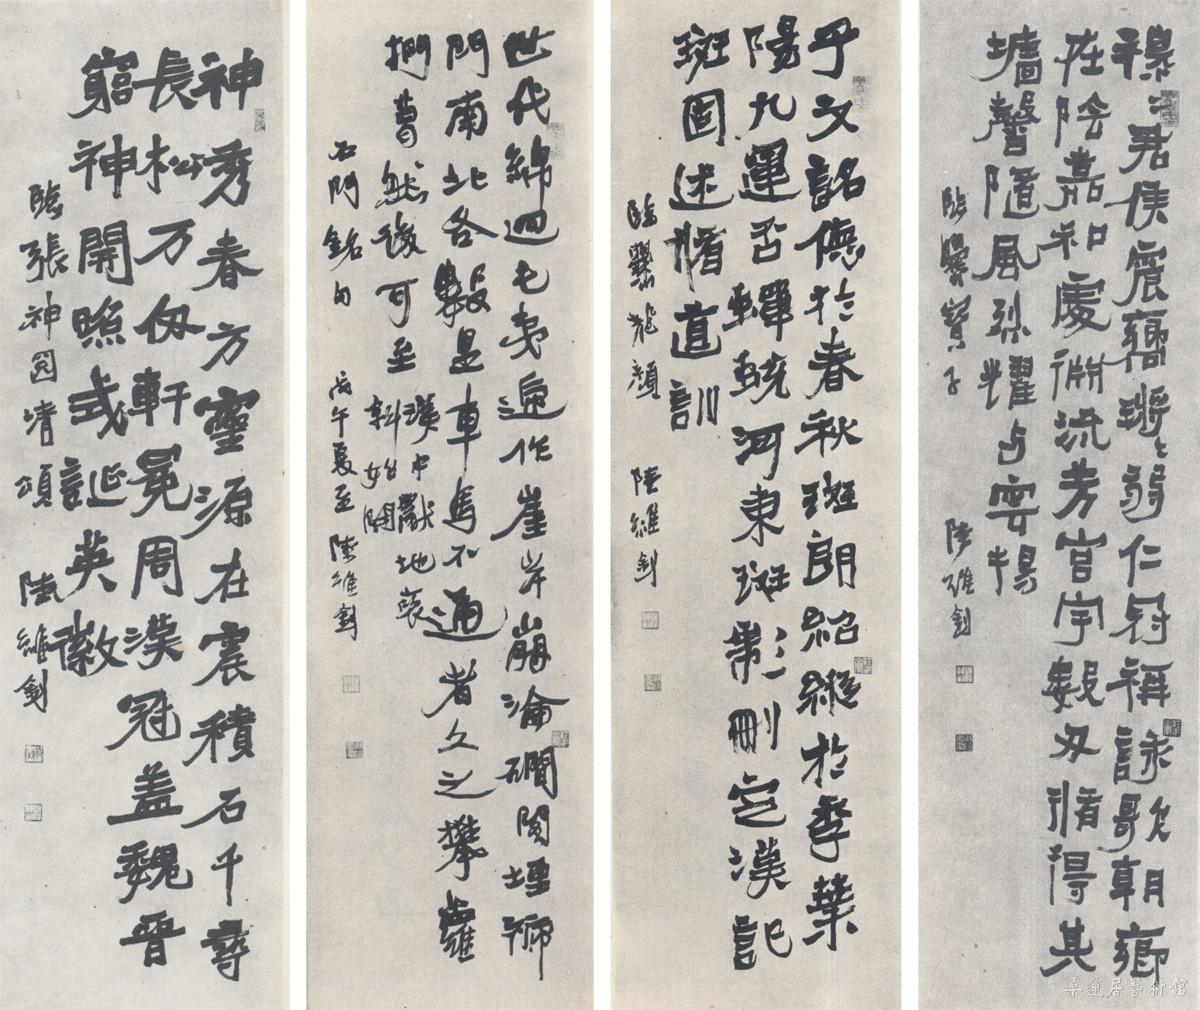 穆〻君侯震響鏘〻弱仁冠稱詠歌朝鄉
在陰嘉和處淵流芳宮宇數仞循得其
墻馨隨風烈耀与雲揚
臨爨寶子 陸維釗
子文銘德於春秋斑朗紹縱於季葉
陽九運否蟬蛻河東班彪刪定漢記
班固述脩道訓
臨爨龍顏 陸維釗
世代綿迴屯夷遞作崖岸崩淪磵閣堙褫
門南北各數里車馬不通者久之攀蘿
捫葛然後可至
漢中獻地褒
斜始開
石門銘句 丙午夏至 陸維釗
神秀春方靈源在震積石千尋
長松万仞軒冕周漢冠盖魏晉
窮神開照式誕英徽
臨張神冏清頌 陸維釗